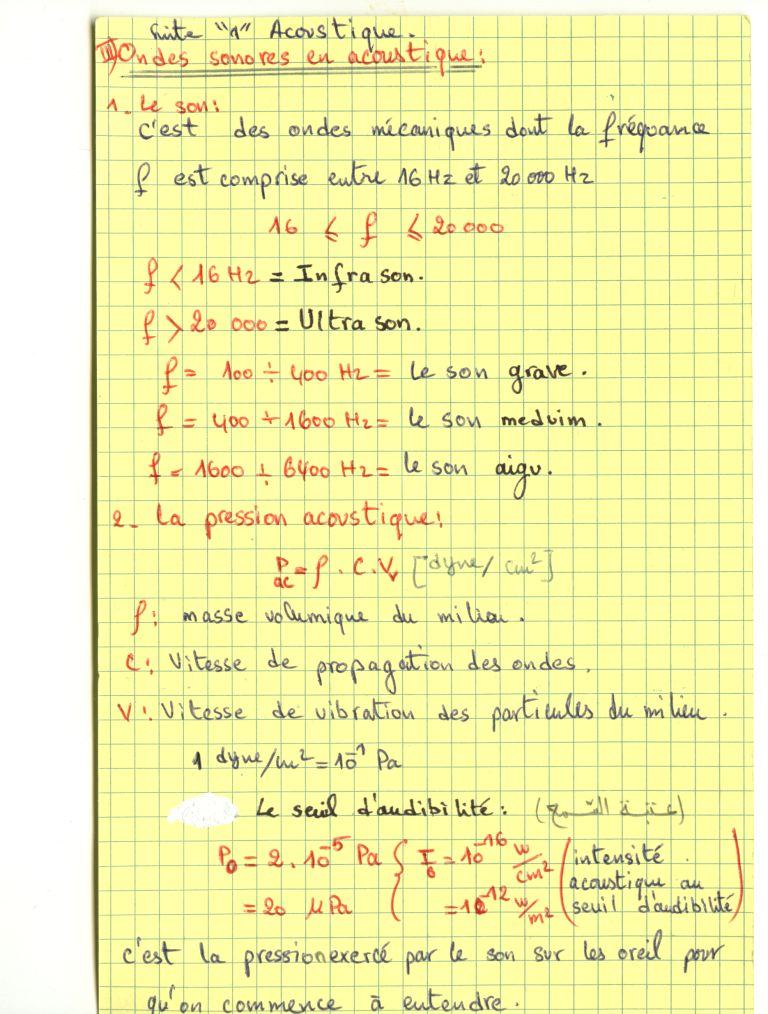 Suite "a" Acoustique.
III) Ondes sonores en acoustique:
1_ Le son:
c'est des ondes mécaniques dont la fréquance
f est comprise entre 16 Hz et 20 000 Hz
16 ⩽ f ⩽ 20 000
f < 16 Hz = Infra son.
f > 20 000 = Ultra son.
f = 100 ÷ 400 Hz = le son grave.
f = 400 ÷ 1600 Hz = le son meduim.
f = 1600 ÷ 6400 Hz = le son aigu.
2_ La pression acoustique:
P_ac = ρ . C . V, [dyne/cm²]
ρ: masse volumique du milieu.
C: Vitesse de propagation des ondes.
V: Vitesse de vibration des particules du milieu.
1 dyne/m² = 10⁻¹ Pa
Le seuil d'audibilité: (عتبة السمع)
P₀ = 2. 10⁻⁵ Pa { I₀ = 10⁻¹⁶ w/cm² (intensité
= 20 μPa = 10⁻¹² w/m² acoustique au
seuil d'audibilité)
c'est la pression exercé par le son sur les oreil pour
qu'on commence à entendre.